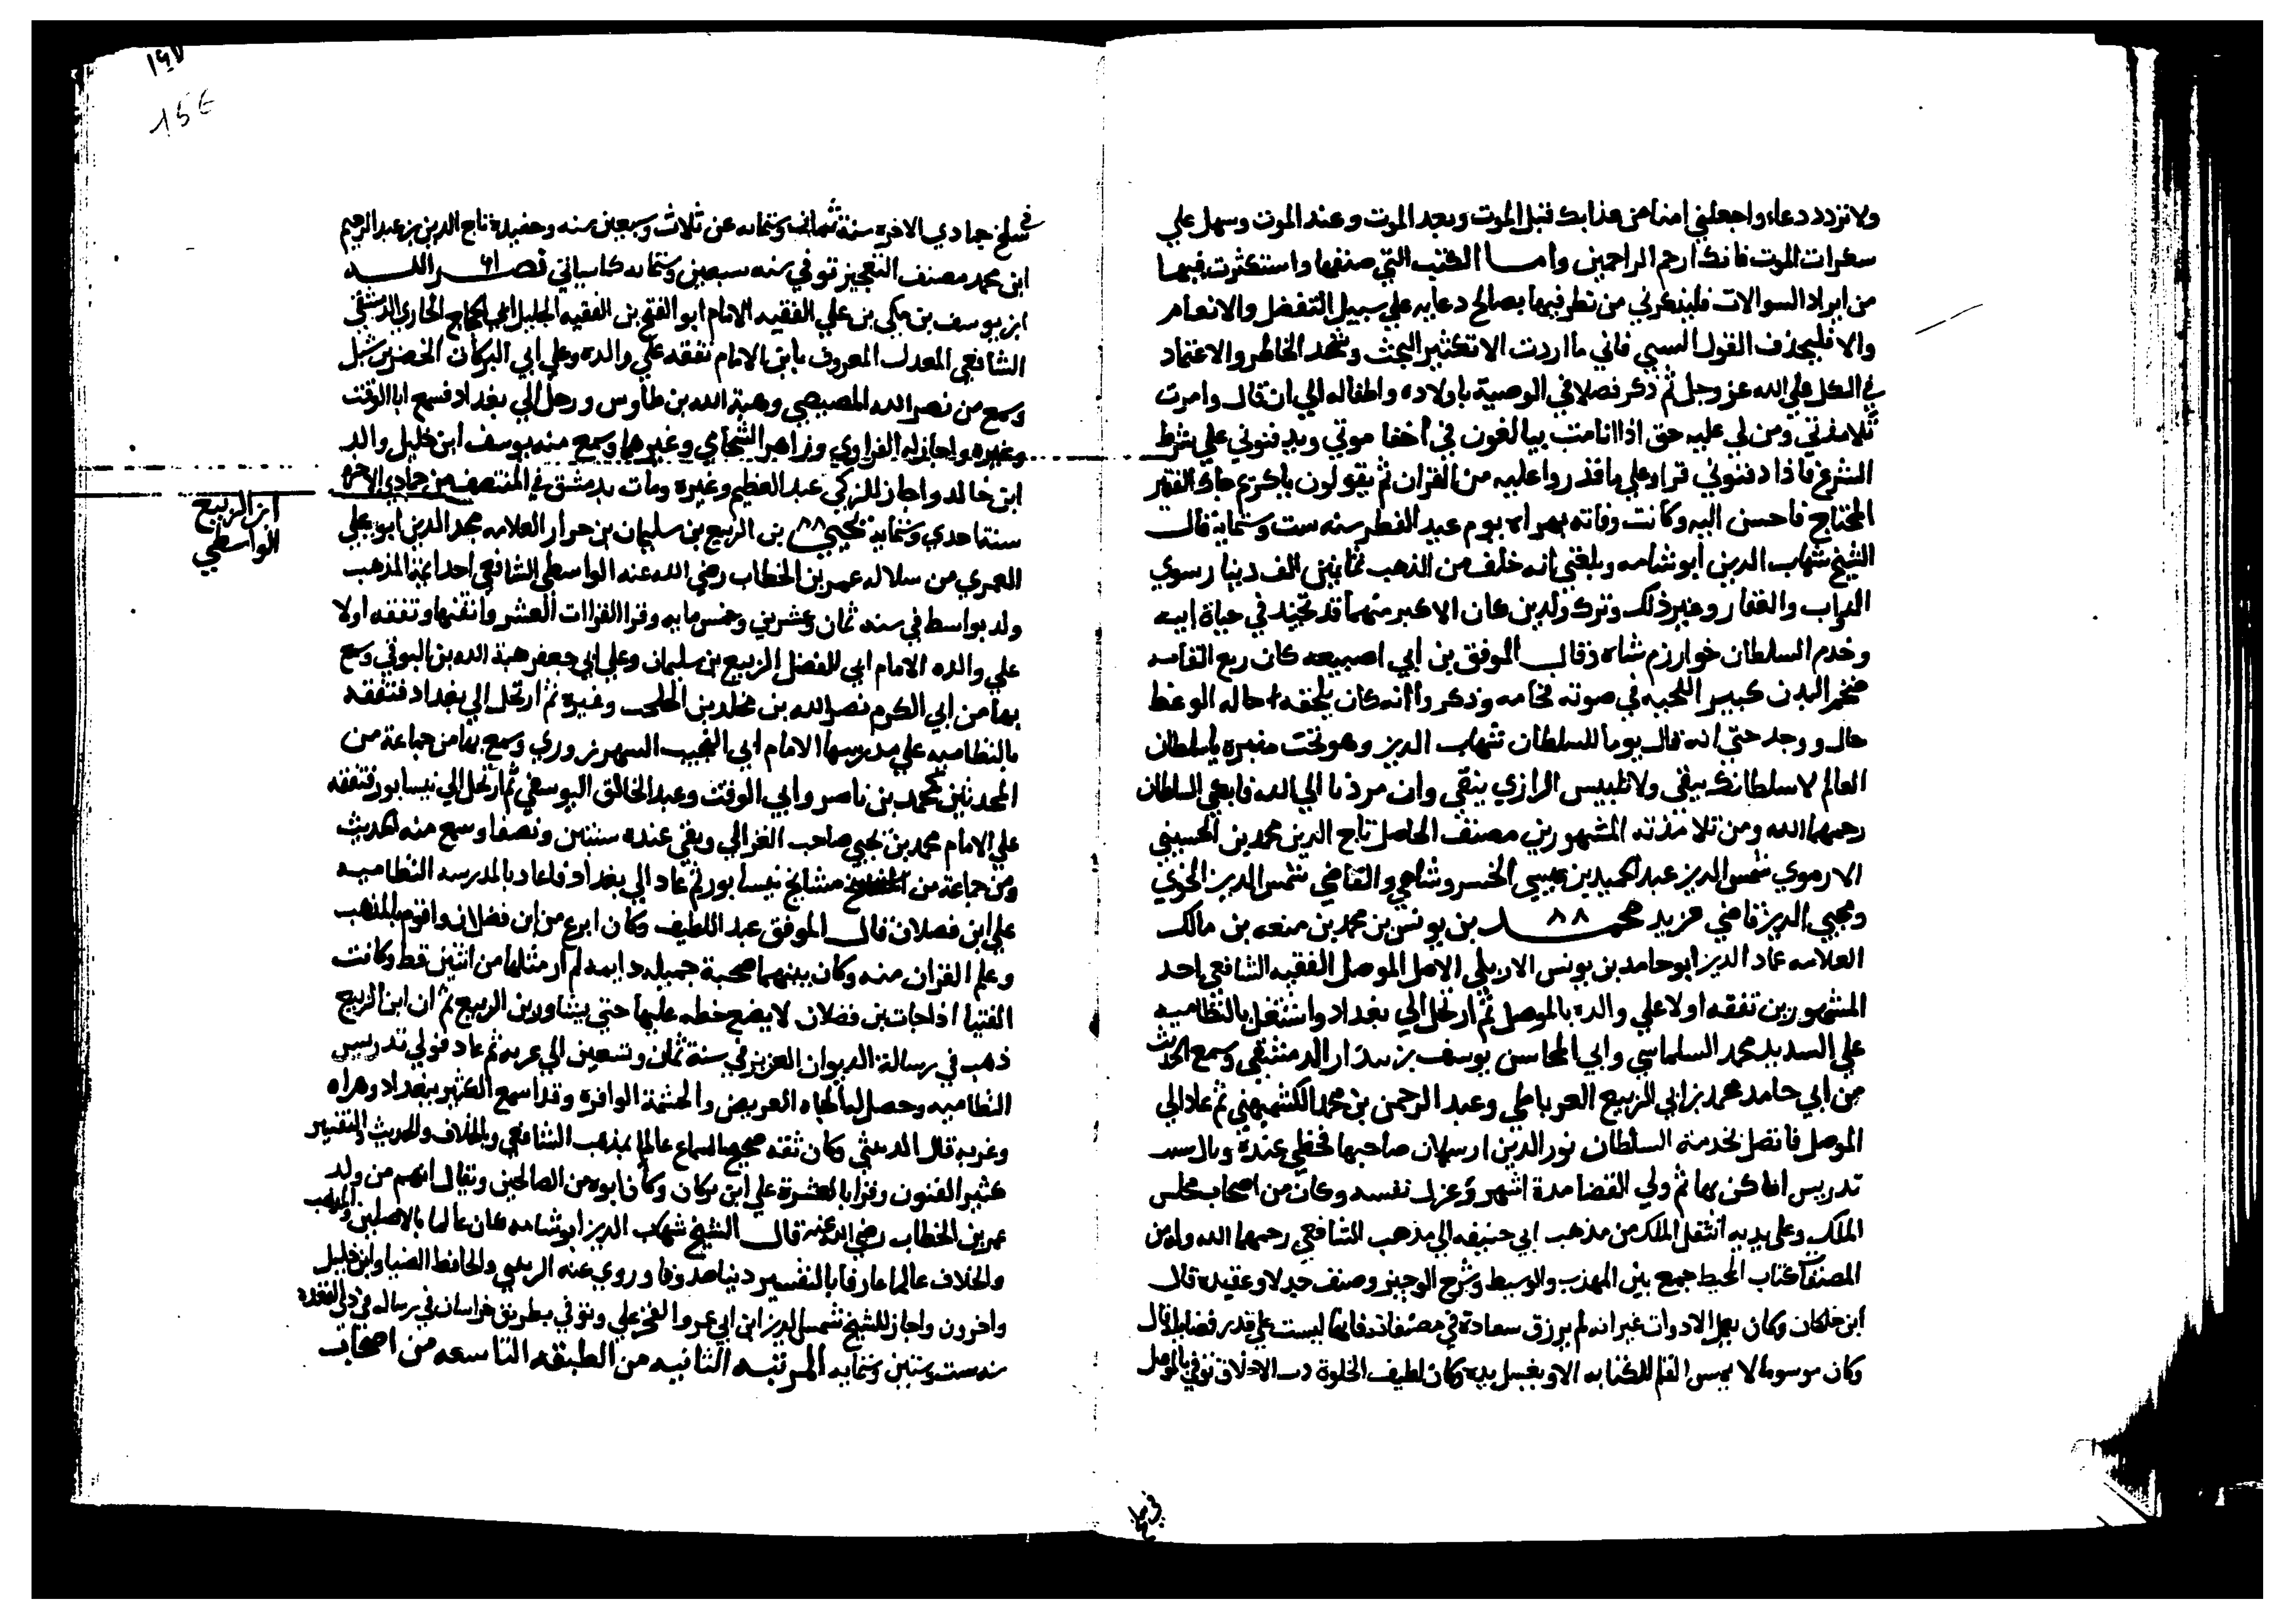 ولا تردد دعاء واجعلني امنا من عذابك قبل الموت وبعد الموت وعند الموت وسهل علي
سكرات الموت فانك ارحم الراحمين واما الكتب التي صنفتها واستكثرت فيها
من ايراد السوالات فليذكرني من نظر فيها بصالح دعايه علي سبيل التفضل والانعام
والا فليحذف القول السيي فاني ما اردت الا تكثير البحث وشحد الخاطر والاعتماد
في الكل علي الله عز وجل ثم ذكر فصلا في الوصية باولاده واطفاله الي ان قال وامرت
تلامذتي ومن لي عليه حق اذا انا مت يبالغون في اخفا موتي ويدفنوني علي شرط
الشرع فاذا دفنوني قراو علي ما قدروا عليه من القران ثم يقولون ياكريم جاك الفقير
المحتاج فاحسن اليه وكانت وفاته بهراه يوم عيد الفطر سنه ست وستمايه قال
الشيخ شهاب الدين ابو شامه وبلغني انه خلف من الذهب ثمانين الف دينار سوي
الدواب والعقار وغير ذلك وترك ولدين كان الاكبر منهما قد تجند في حياة ابيه
وخدم السلطان خوارزم شاه وقال الموفق بن ابي اصيبعه كان ربع القامه
ضخم البدن كبير اللحيه في صوته فخامه وذكروا انه كان يلحقه حاله الوعظ
حال ووجد حتي انه قال يوما للسلطان شهاب الدين وهو تحت منبره ياسلطان
العالم لا سلطانك يبقي ولا تلبيس الرازي يبقي وان مردنا الي الله فابكي السلطان
رحمهما الله ومن تلامذته المشهورين مصنف الحاصل تاج الدين محمد بن الحسيني
الارموي شمس الدين عبد الحميد بن عيسي الخسروشاهي والقاضي شمس الدين الخوي
ومحيي الدين قاضي مرند محمد بن يونس بن محمد بن منعه بن مالك
العلامه عماد الدين ابو حامد بن يونس الاربلي الاصل الموصلي الفقيه الشافعي احد
المشهورين تفقه اولا علي والده بالموصل ثم ارتحل الي بغداد واشتغل بالنظاميه
علي السديد محمد السلماسي وابي المحاسن يوسف بن بندار الدمشقي وسمع الحديث
من ابي حامد محمد بن ابي الربيع الغرناطي وعبد الرحمن بن محمد الكشميهني ثم عاد الي
الموصل فاتصل بخدمته السلطان نور الدين ارسلان صاحبها فحظي عنده
تدريس اماكن بها ثم ولي القضا مدة اشهر وعزل نفسه وكان من اصحاب مجلس
الملك وعلي يديه انتقل الملك من مذهب ابي حنيفه الي مذهب الشافعي رحمهما الله وله من
المصنفات كتاب المحيط جمع بين المهذب والوسيط وشرح الوجيز وصنف جدلا وعقيده قال
ابن خلكان وكان بكل الادوات غير انه لم يرزق سعادة في مصنفاته فانها ليست علي قدر فضايله قال
وكان موسوما لا يمس القلم للكتابه الا ويغسل يده وكان لطيف الخلوة دمث الاخلاق توفي بالموصل
١٤٧
154
في سلخ جمادي الاخره سنة ثمان وستمايه عن ثلاث وسبعين سنه وحفيده تاج الدين بن عبد الرحيم
ابن محمد مصنف التعجيز توفي سنه سبعين وستمايه كما سياتي نصر الله
ابن يوسف بن مكي بن علي الفقيه الامام ابو الفتح بن الفقيه الجليل ابي الحجاج الحارثي الدمشقي
الشافعي المعدل المعروف بابن الامام تفقه علي والده وعلي ابي البركات الخضر بن شبل
وسمع من نصر الله المصيصي وهبة الله بن طاوس ورحل الي بغداد فسمع ابا الوقت
وغيره واجاز له الفراوي وزاهر الشحامي وغيرهما وسمع منه يوسف ابن خليل والد
ابن خالد واجاز للزكي عبد العظيم وغيره ومات بدمشق في المنتصف من جمادي الاخره
سنة احدي وستمايه يحيي بن الربيع بن سليمان بن حراز العلامه مجد الدين ابو علي
العمري من سلاله عمر بن الخطاب رضي الله عنه الواسطي الشافعي احد ايمة المذهب
ابن الربيع
الواسطي
ولد بواسط في سنه ثمان وعشرين وخمس مايه وقرا القراات العشر واتقنها وتفقه اولا
علي والده الامام ابي الفضل الربيع بن سليمان وعلي ابي جعفر هبة الله بن البوقي وسمع
بها من ابي الكرم نصر الله بن مخلد بن الجلخت وغيره ثم ارتحل الي بغداد فتفقه
بالنظاميه علي مدرسها الامام ابي النجيب السهروردي وسمع بها من جماعة من
المحدثين كمحمد بن ناصر وابي الوقت وعبد الخالق اليوسفي ثم ارتحل الي نيسابور فتفقه
علي الامام محمد بن يحيي صاحب الغزالي وبقي عنده سنتين ونصفا وسمع منه الحديث
ومن جماعة من مشايخ نيسابور ثم عاد الي بغداد فاعاد بالمدرسه النظاميه
علي ابن فضلان قال الموفق عبد اللطيف وكان ابرع من ابن فضلان واقوم بالمذهب
وعلم القران منه وكان بينهما صحبة جميله دايمه لم ار مثلها من اثنين قط وكانت
الفتيا اذا جات بن فضلان لا يضع خطه عليها حتي يشاور بن الربيع ثم ان ابن الربيع
ذهب في رسالة الديوان العزيز في سنة ثمان وتسعين الي غزنه ثم عاد فولي تدريس
النظاميه وحصل له الجاه العريض والحشمة الوافره وقد اسمع الكثير ببغداد وهراه
وغزنه قال الدبيثي وكان ثقه صحيح السماع عالما بمذهب الشافعي وبالخلاف والحديث والتفسير
كثير الفنون وقرا بالعشرة علي ابن تركان وكان ابوه من الصالحين ويقال انهم من ولد
عمر بن الخطاب رضي الله عنه قال الشيخ شهاب الدين ابو شامه كان عالما بالاصلين والمذهب
والخلاف عالما عارفا بالتفسير دينا صدوقا وروي عنه الدبيثي والحافظ الضيا وابن خليل
واخرون واجاز للشيخ شمس الدين ابن ابي عمر والفخر علي وتوفي بطريق خراسان في رساله في ذي القعده
سنه ست وستين وستمايه المرتبه الثانيه من الطبقه التاسعه من اصحاب